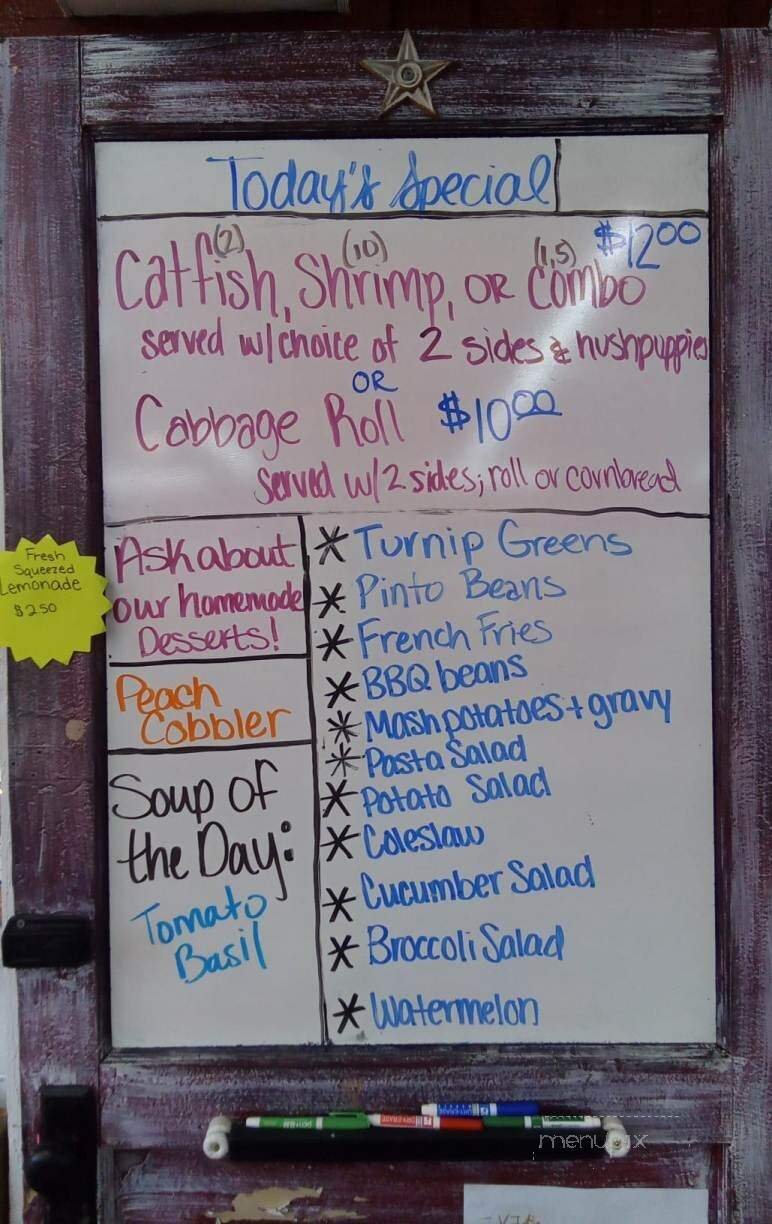 Today's Special
(2) (10) (1,5) $12.00
Catfish, Shrimp, OR Combo
served w/choice of 2 sides & hushpuppies
OR
Cabbage Roll $10.00
Served w/2 sides; roll or cornbread
Fresh
Squeezed
Lemonade
$2.50
Ask about
our homemade
Desserts!
Peach
Cobbler
Soup of
the Day:
Tomato
Basil
* Turnip Greens
* Pinto Beans
* French Fries
* BBQ beans
* Mash potatoes + gravy
* Pasta Salad
* Potato Salad
* Coleslaw
* Cucumber Salad
* Broccoli Salad
* Watermelon
menupix